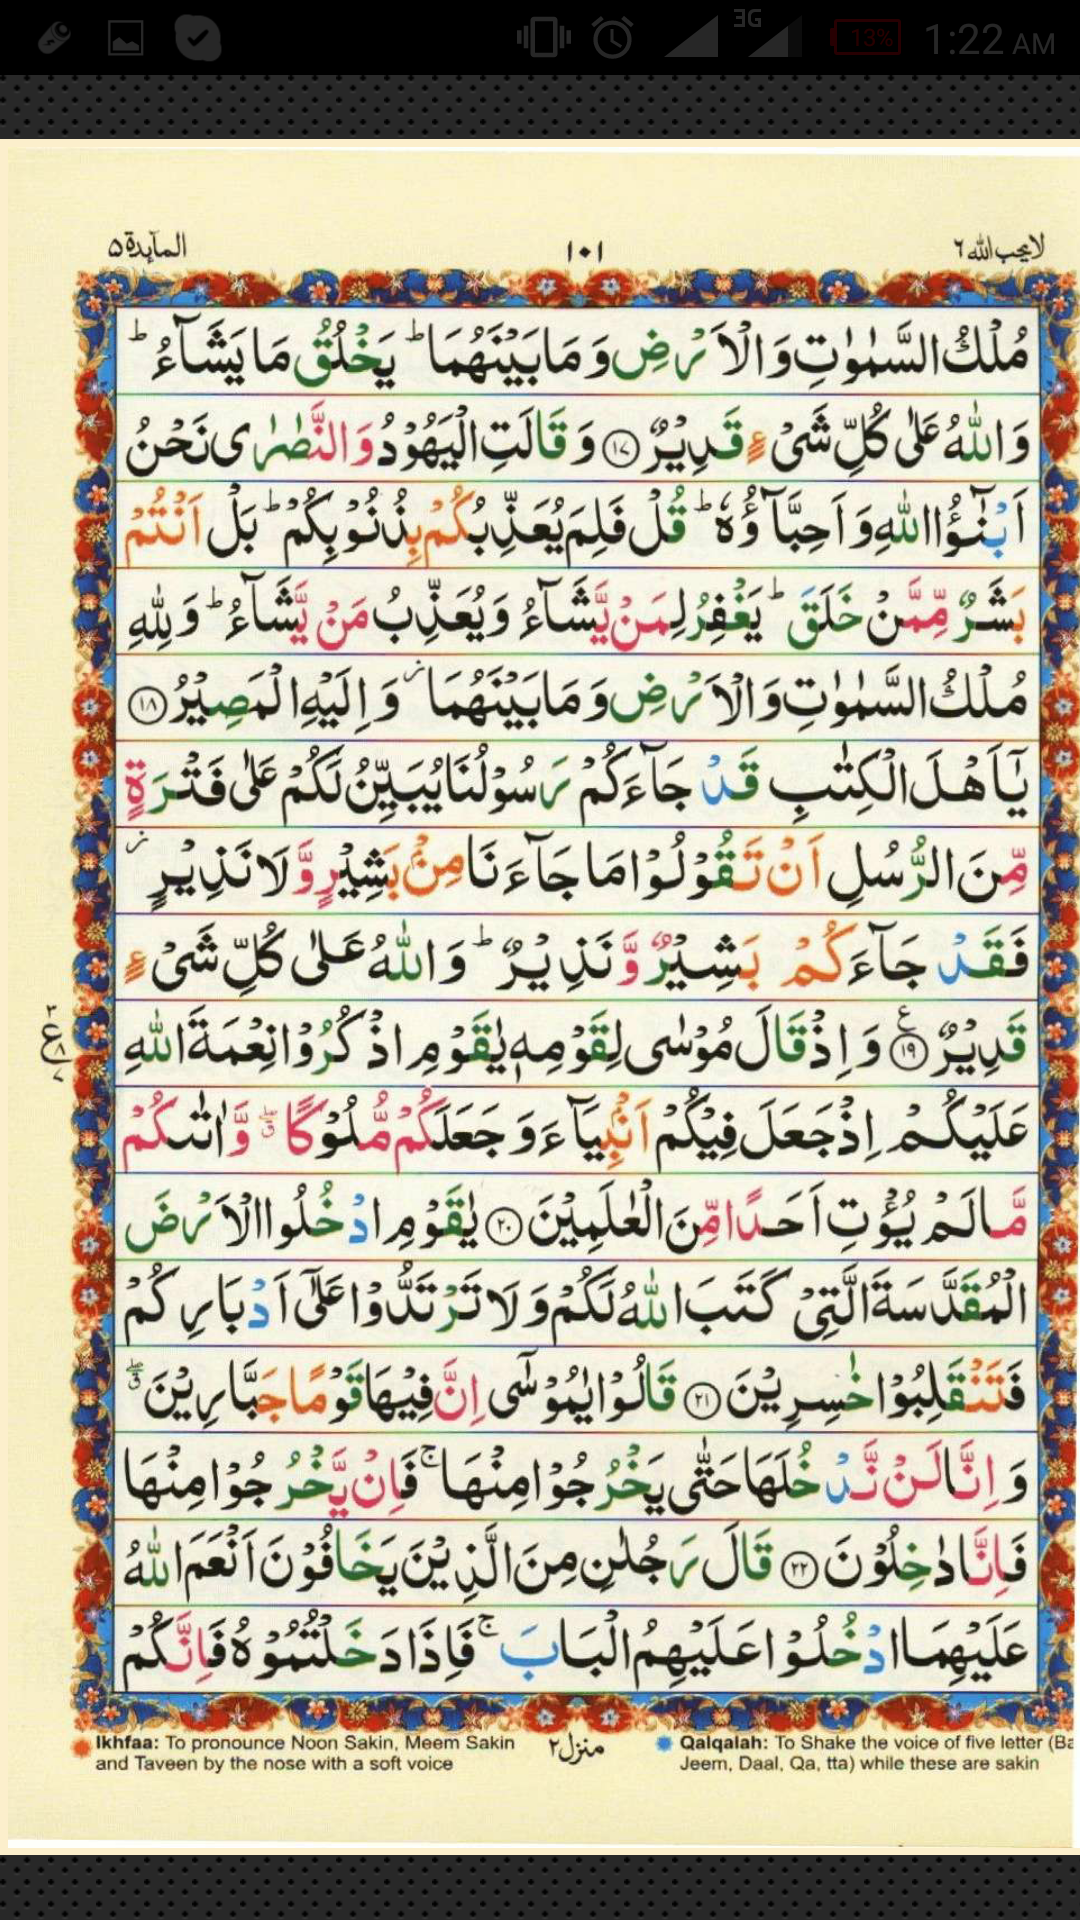 3G
13%
1:22 AM
لا يحب الله ٦
١٠١
المآىدة ٥
مُلْكُ السَّمٰوٰتِ وَالْاَرْضِ وَمَا بَيْنَهُمَا ؕ يَخْلُقُ مَا يَشَآءُ ؕ
وَاللّٰهُ عَلٰى كُلِّ شَىْءٍ قَدِيْرٌ ۝۱۷ وَقَالَتِ الْيَهُوْدُ وَالنَّصٰرٰى نَحْنُ
اَبْنٰٓؤُا اللّٰهِ وَاَحِبَّآؤُهٗ ؕ قُلْ فَلِمَ يُعَذِّبُكُمْ بِذُنُوْبِكُمْ ؕ بَلْ اَنْتُمْ
بَشَرٌ مِّمَّنْ خَلَقَ ؕ يَغْفِرُ لِمَنْ يَّشَآءُ وَيُعَذِّبُ مَنْ يَّشَآءُ ؕ وَلِلّٰهِ
مُلْكُ السَّمٰوٰتِ وَالْاَرْضِ وَمَا بَيْنَهُمَا ز وَاِلَيْهِ الْمَصِيْرُ ۝۱۸
يٰۤاَهْلَ الْكِتٰبِ قَدْ جَآءَكُمْ رَسُوْلُنَا يُبَيِّنُ لَكُمْ عَلٰى فَتْرَةٍ
مِّنَ الرُّسُلِ اَنْ تَقُوْلُوْا مَا جَآءَنَا مِنْۢ بَشِيْرٍ وَّلَا نَذِيْرٍ ز
فَقَدْ جَآءَكُمْ بَشِيْرٌ وَّنَذِيْرٌ ؕ وَاللّٰهُ عَلٰى كُلِّ شَىْءٍ
قَدِيْرٌ ۝۱۹ ع وَاِذْ قَالَ مُوْسٰى لِقَوْمِهٖ يٰقَوْمِ اذْكُرُوْا نِعْمَةَ اللّٰهِ
٣ ع ٨ ٧
عَلَيْكُمْ اِذْ جَعَلَ فِيْكُمْ اَنْۢبِيَآءَ وَجَعَلَكُمْ مُّلُوْكًا ۖق وَّاٰتٰىكُمْ
مَّا لَمْ يُؤْتِ اَحَدًا مِّنَ الْعٰلَمِيْنَ ۝۲۰ يٰقَوْمِ ادْخُلُوا الْاَرْضَ
الْمُقَدَّسَةَ الَّتِىْ كَتَبَ اللّٰهُ لَكُمْ وَلَا تَرْتَدُّوْا عَلٰٓى اَدْبَارِكُمْ
فَتَنْقَلِبُوْا خٰسِرِيْنَ ۝۲۱ قَالُوْا يٰمُوْسٰٓى اِنَّ فِيْهَا قَوْمًا جَبَّارِيْنَ ۖق
وَاِنَّا لَنْ نَّدْخُلَهَا حَتّٰى يَخْرُجُوْا مِنْهَا ۚ فَاِنْ يَّخْرُجُوْا مِنْهَا
فَاِنَّا دٰخِلُوْنَ ۝۲۲ قَالَ رَجُلٰنِ مِنَ الَّذِيْنَ يَخَافُوْنَ اَنْعَمَ اللّٰهُ
عَلَيْهِمَا ادْخُلُوْا عَلَيْهِمُ الْبَابَ ۚ فَاِذَا دَخَلْتُمُوْهُ فَاِنَّكُمْ
Ikhfaa: To pronounce Noon Sakin, Meem Sakin
and Taveen by the nose with a soft voice
منزل ٢
Qalqalah: To Shake the voice of five letter (Ba
Jeem, Daal, Qa, tta) while these are sakin